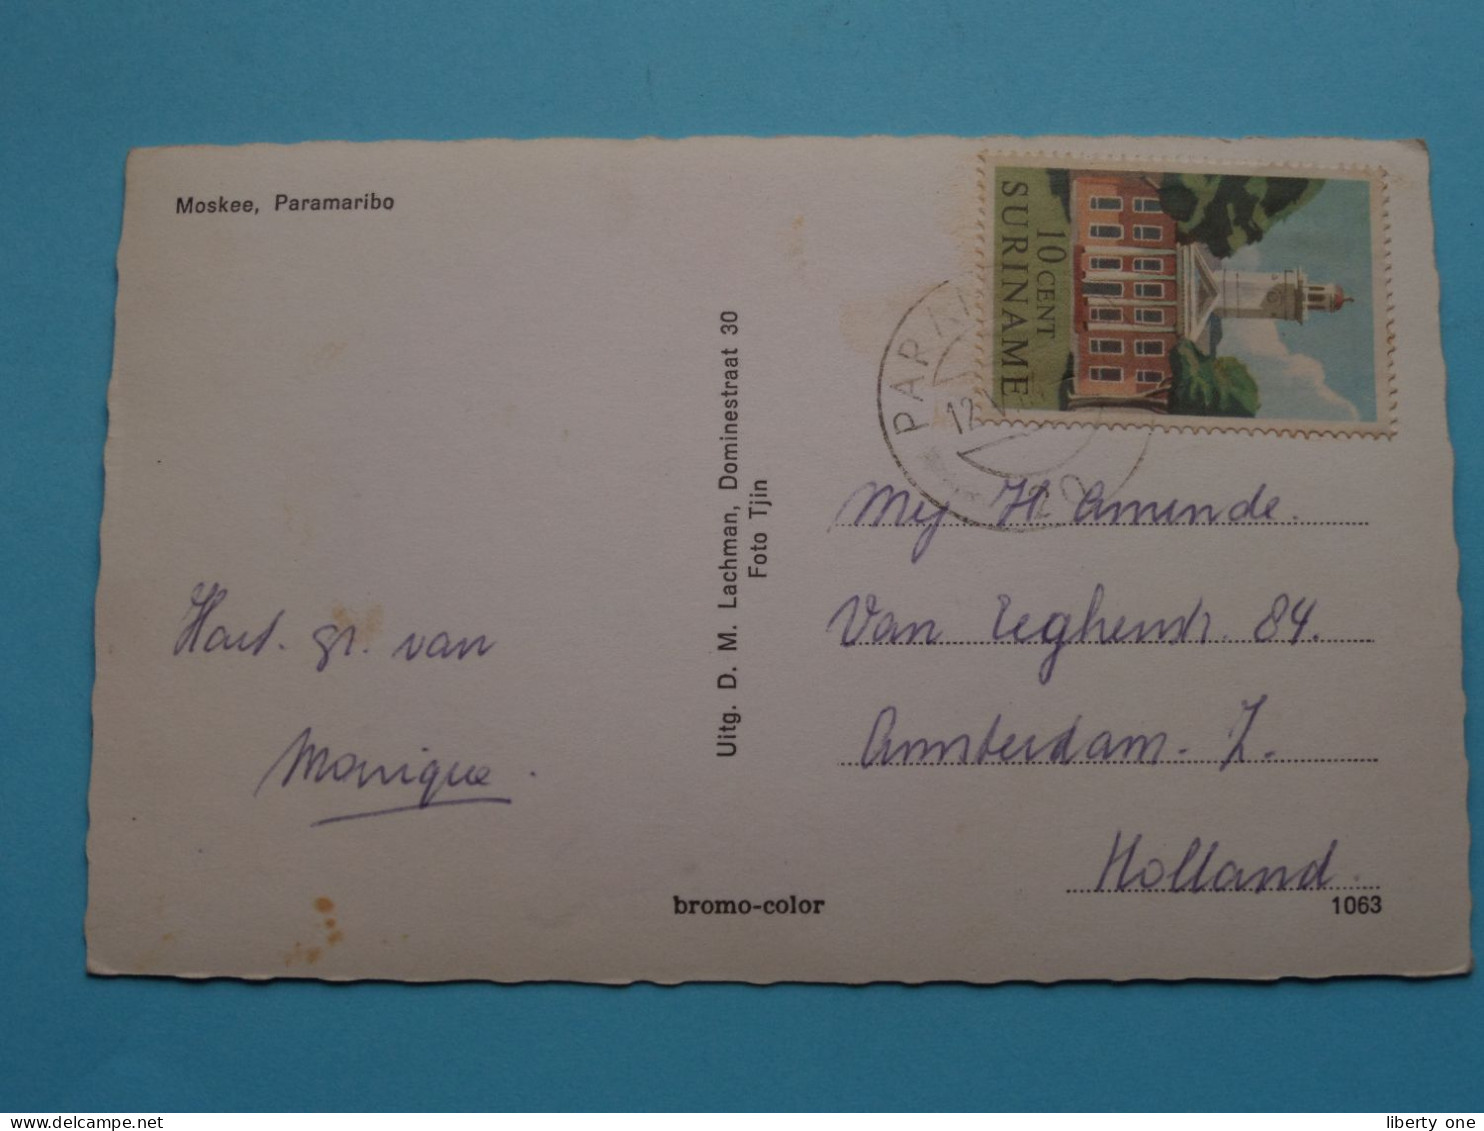 Moskee, Paramaribo
SURINAME
10 CENT
PARA
12
Hart. gr. van
Monique.
Uitg. D. M. Lachman, Dominestraat 30
Foto Tjin
Mej. H. Amende.
Van Eeghenstr. 84.
Amsterdam. Z.
Holland.
bromo-color
1063
www.delcampe.net
liberty one